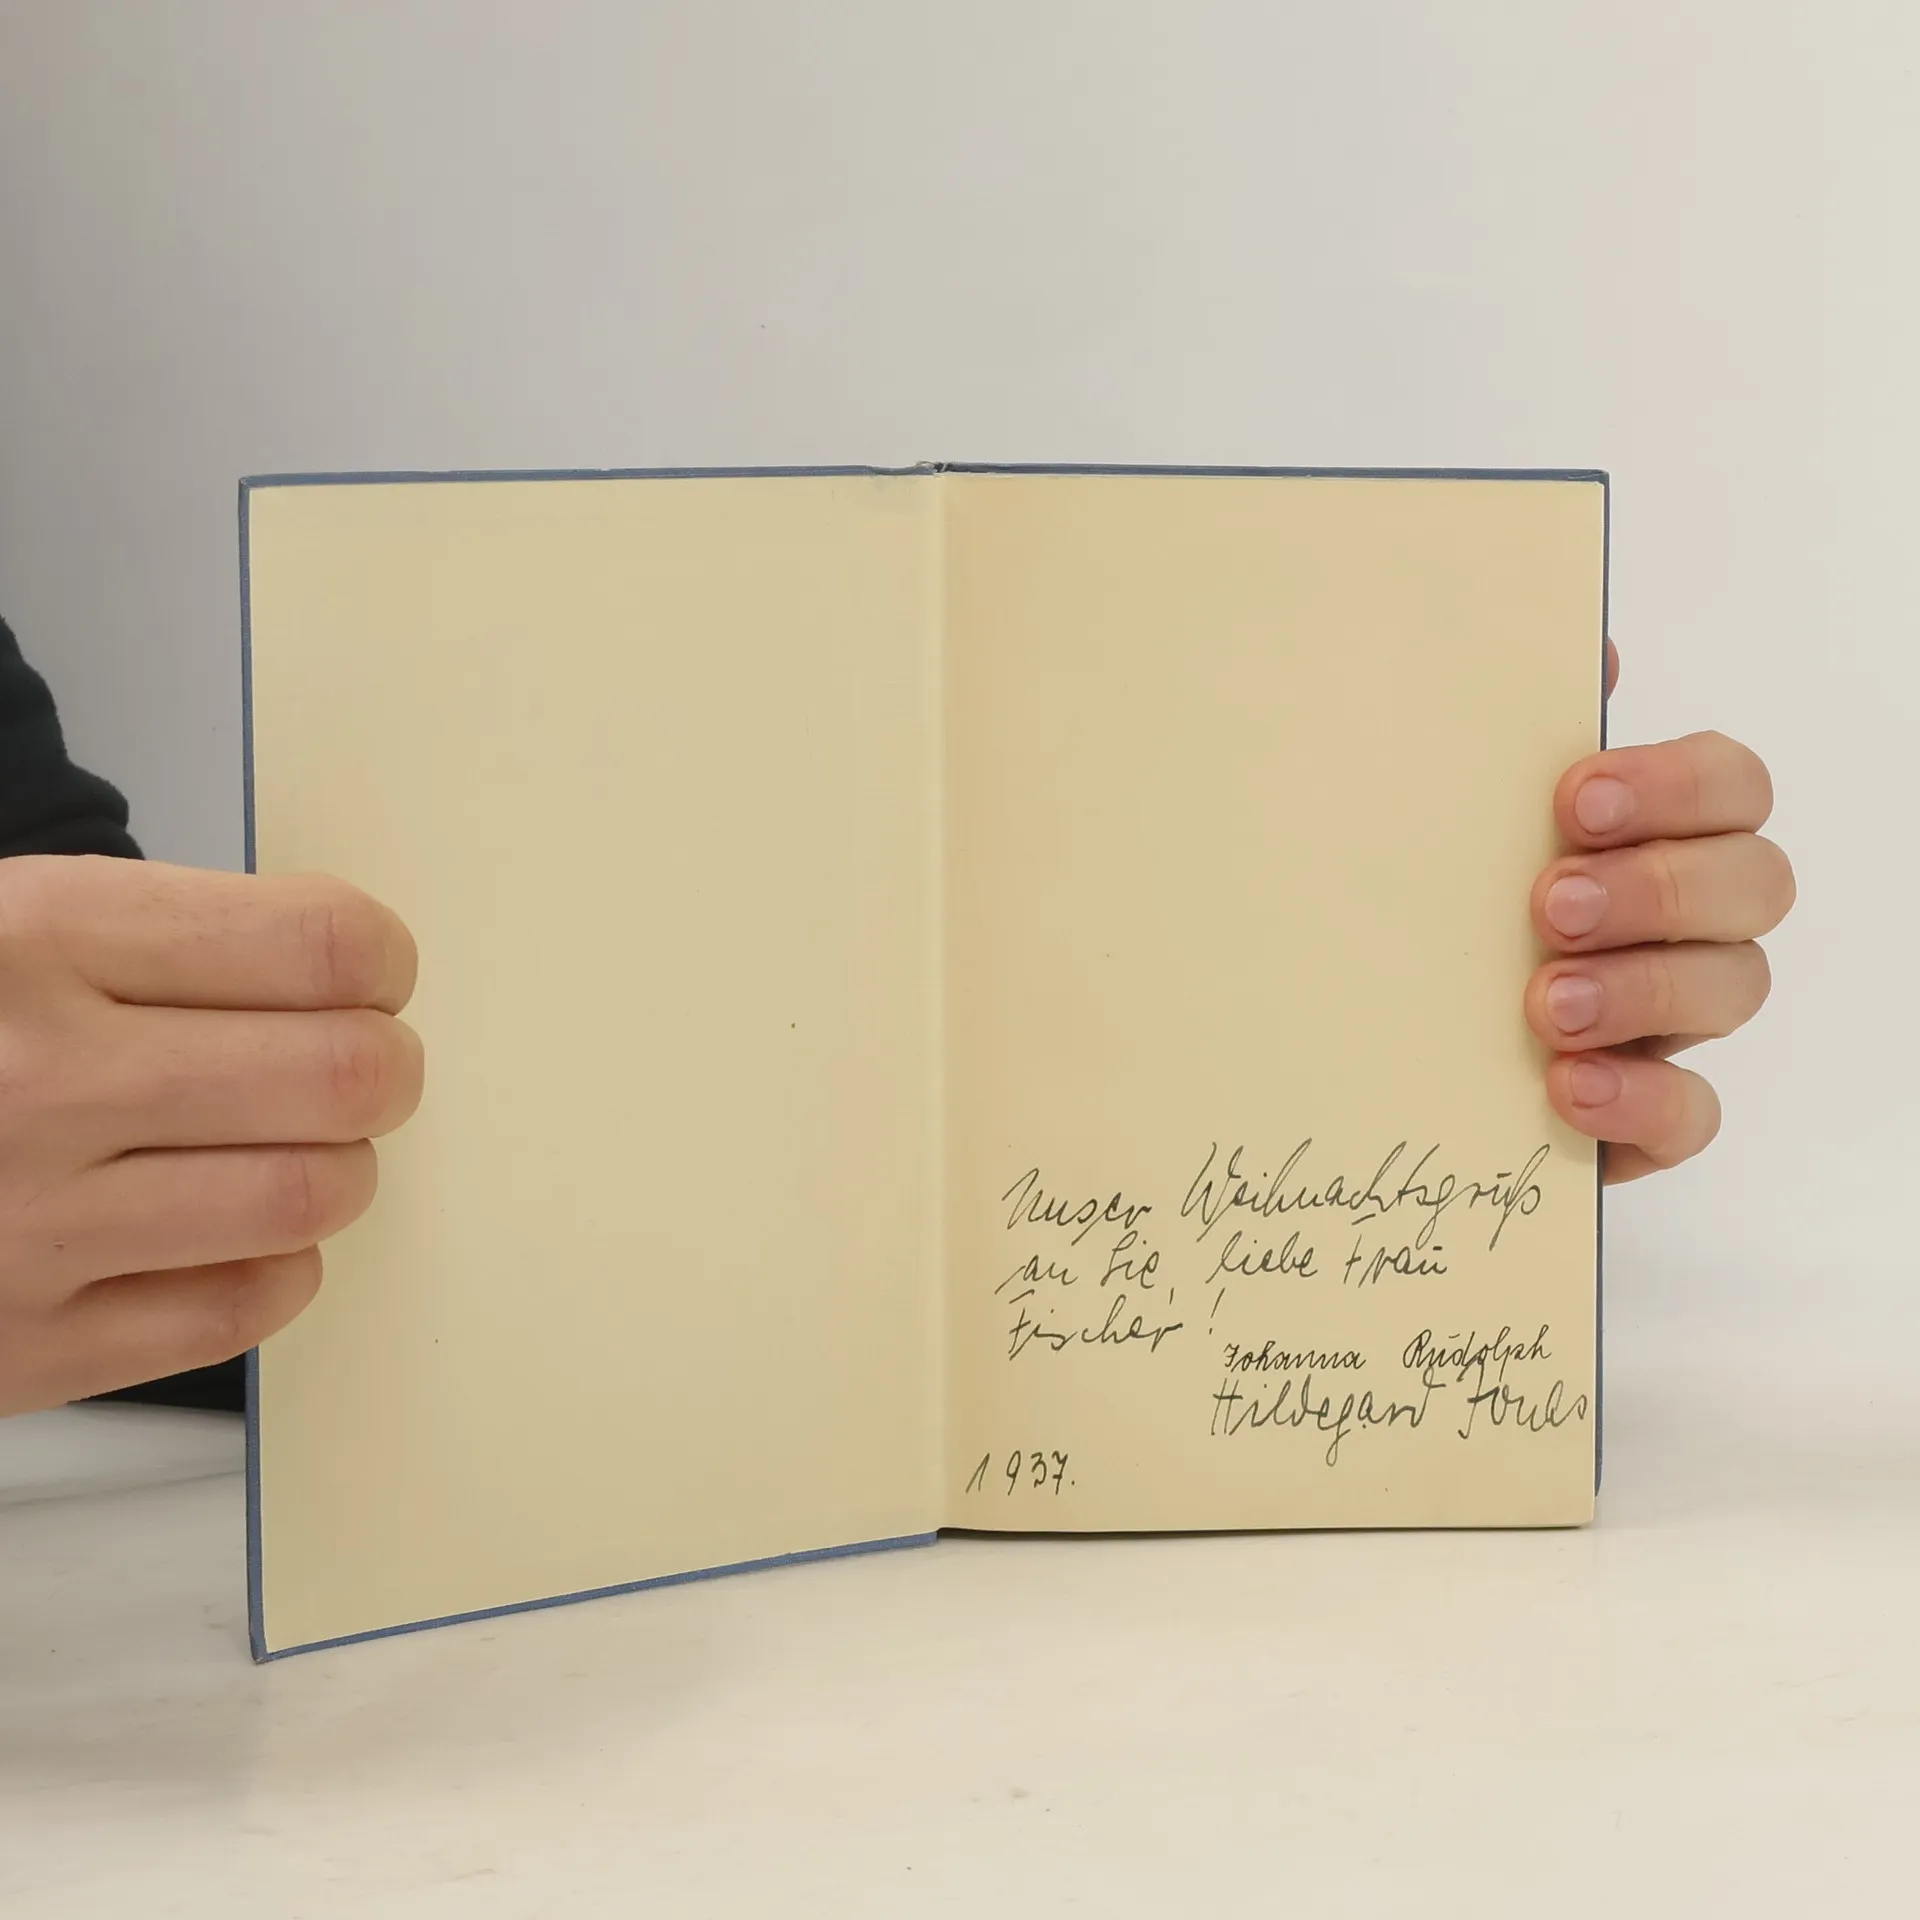 Unser Weihnachtsgruß
an Sie, liebe Frau
Fischer!
Johanna Rudolph
Hildegard
1937.